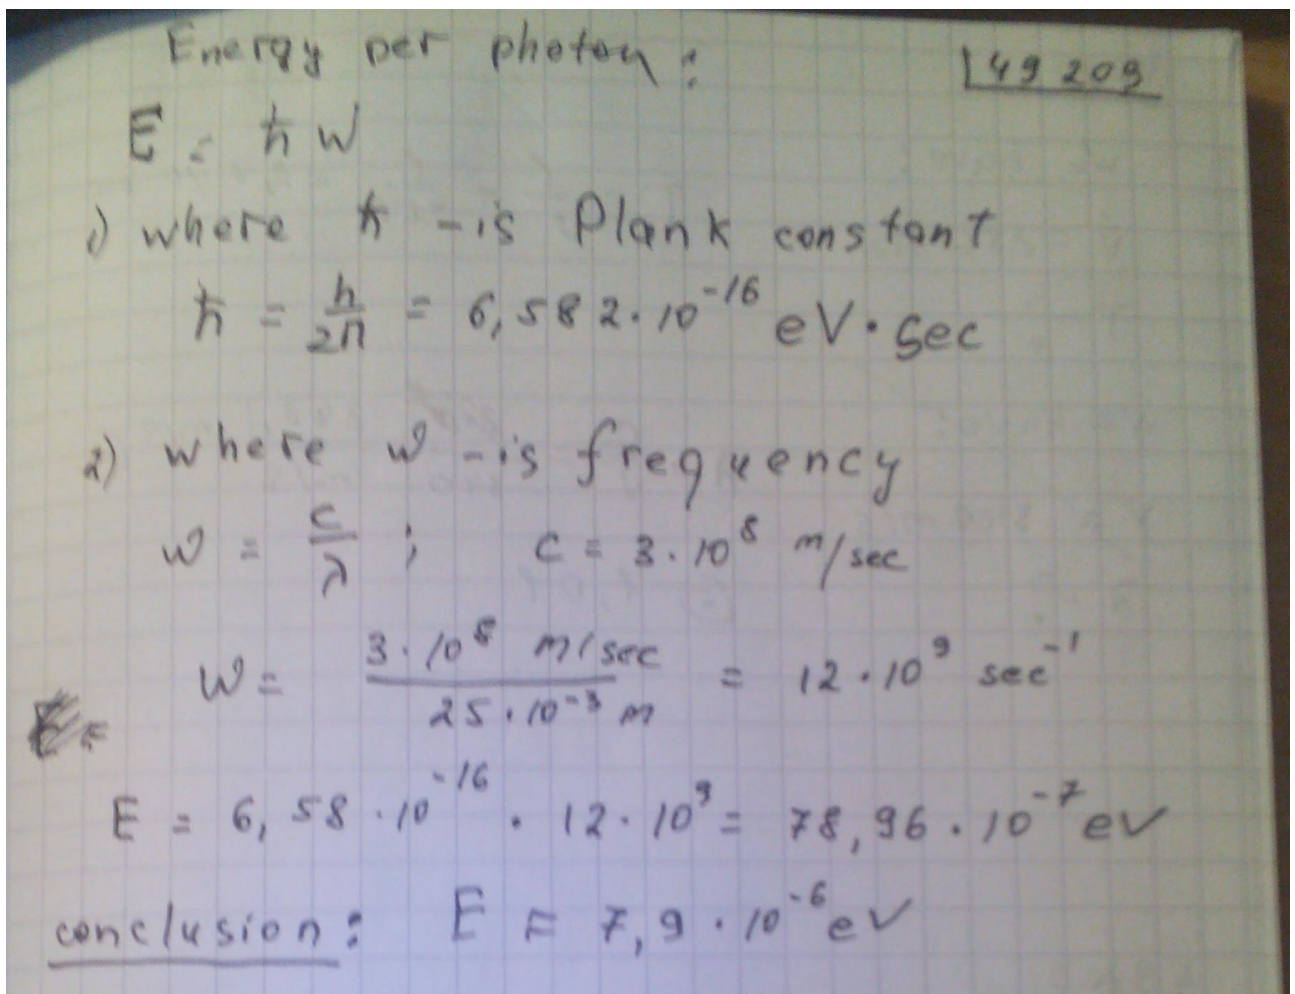 Energy per photon:
49 209
E = ħ w
1) where ħ - is Plank constant
ħ = h/2π = 6,582·10^-16 eV·sec
2) where w - is frequency
w = c/λ ; c = 3·10^8 m/sec
w = 3·10^8 m/sec / 25·10^-3 m = 12·10^9 sec^-1
E = 6,58·10^-16 · 12·10^9 = 78,96·10^-7 eV
conclusion: E = 7,9·10^-6 eV